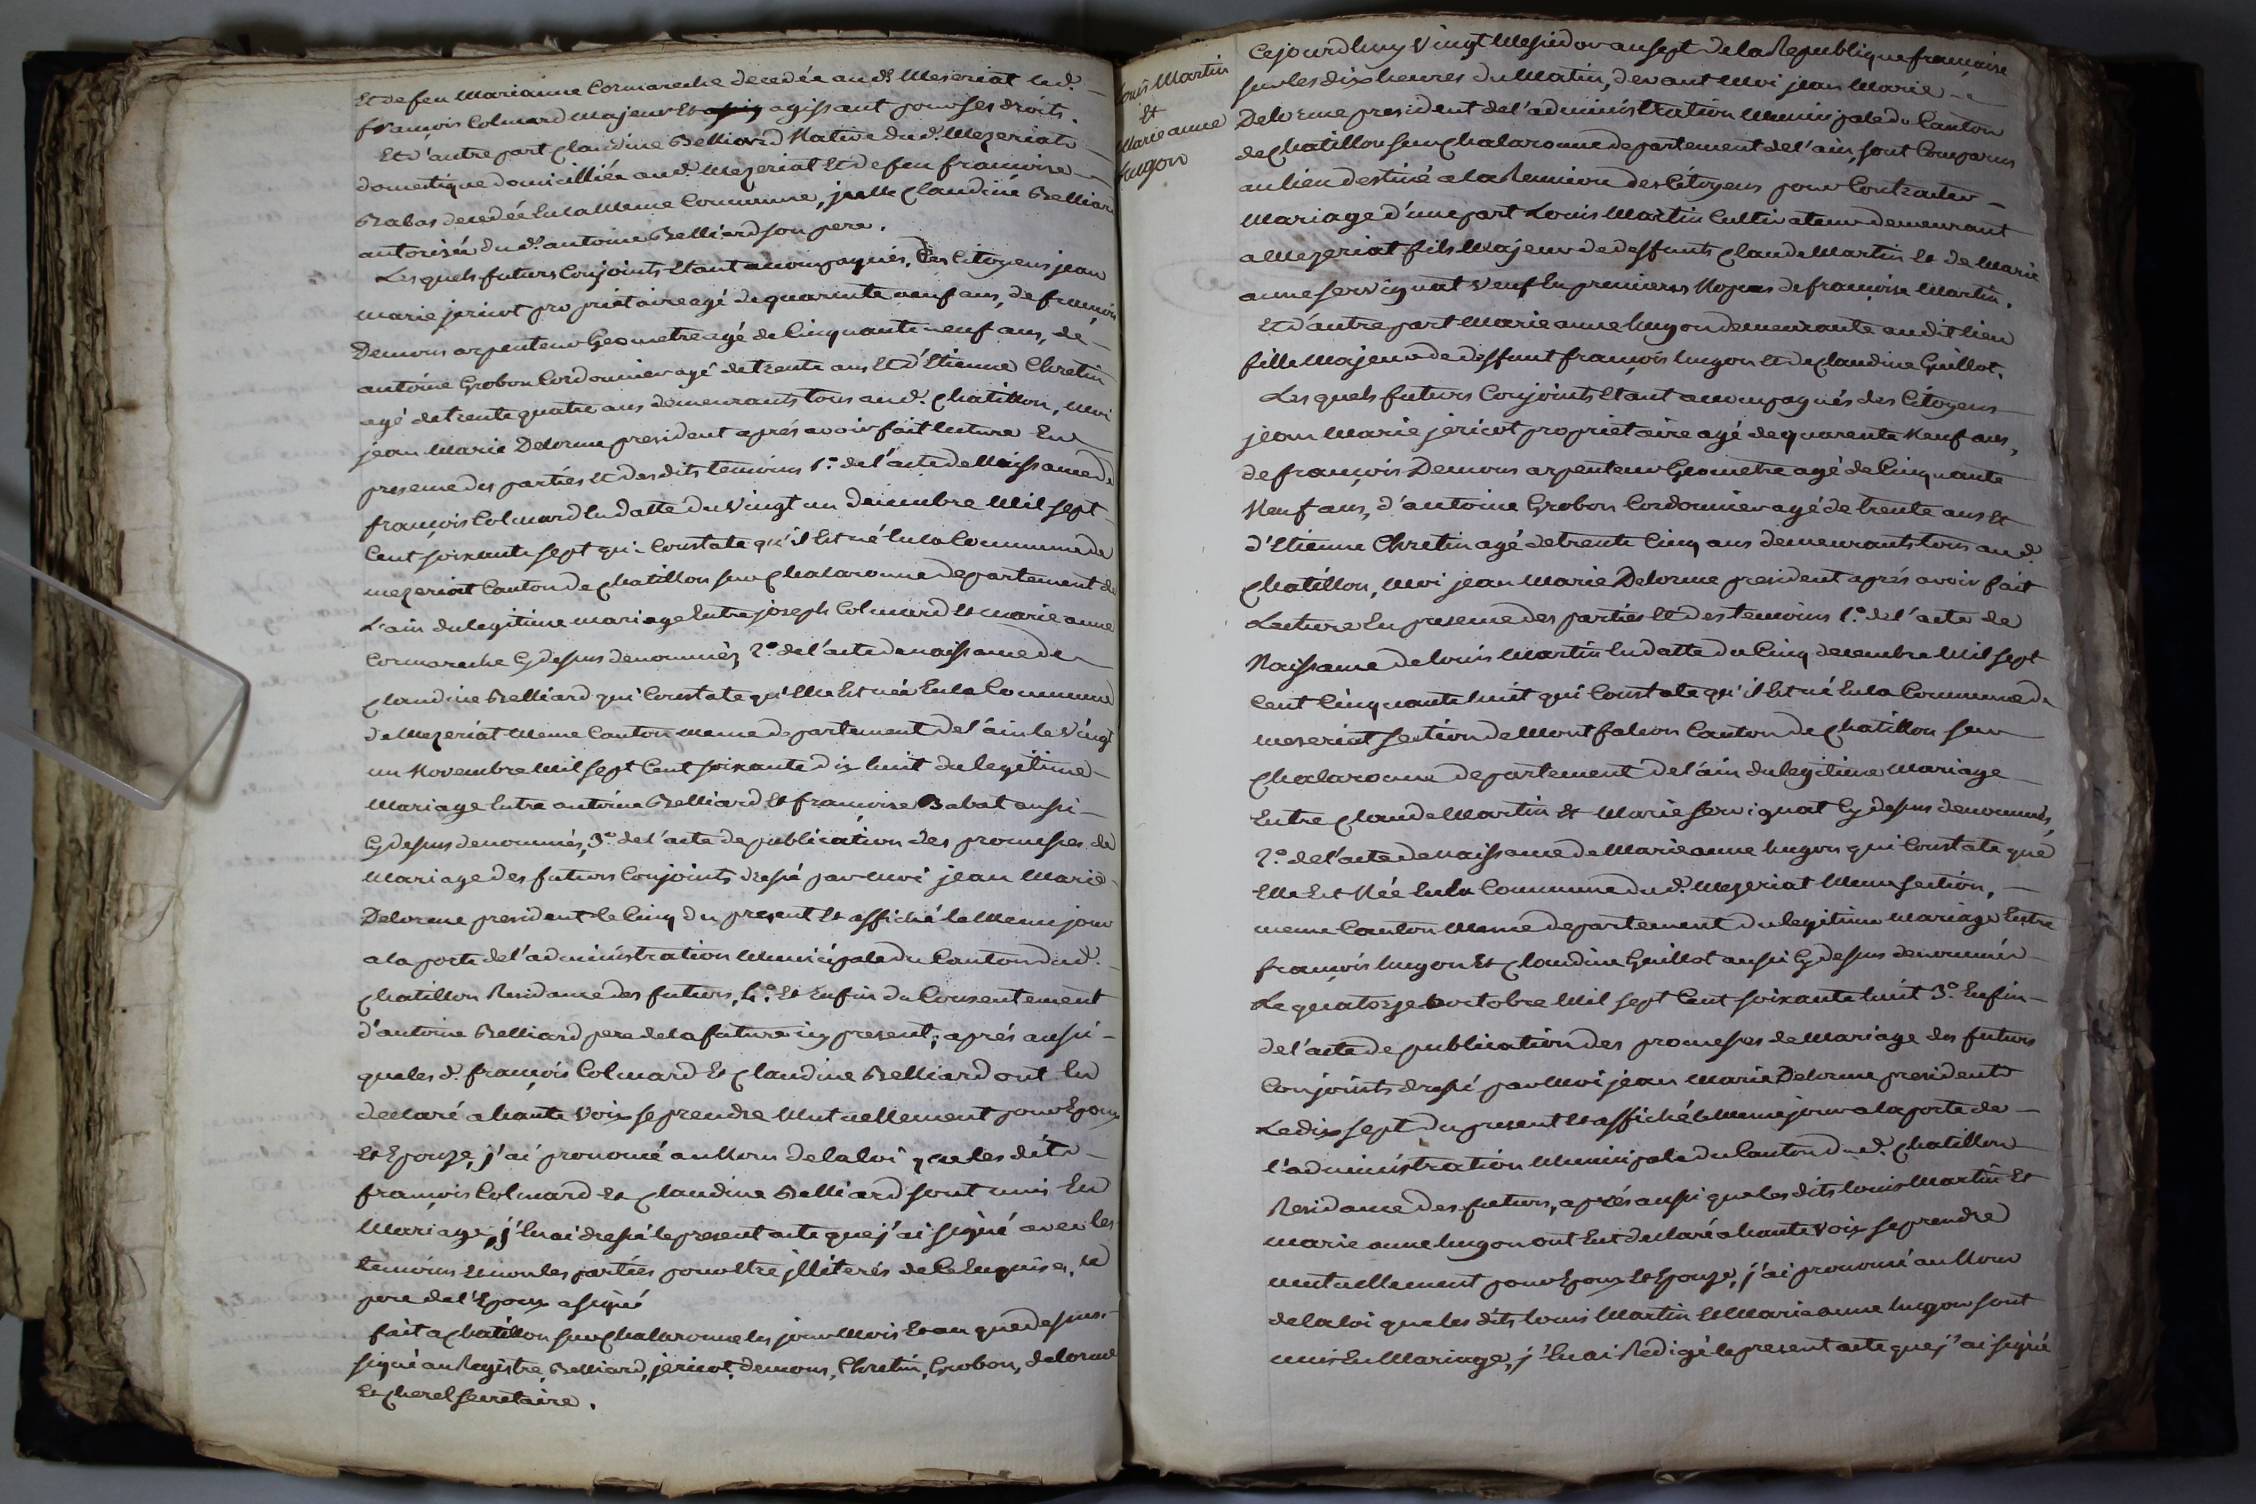 Et de feu Marianne Cormareche decedée aud. Meseriat led.
françois Colmard majeur Et agissant pour ses droits.
Et d'autre part Claudine Belliard Native dud. Mezeriat
domestique domicilliée aud. Mezeriat Et de feu françoise
Babas decedée En la Meme Commune, jcelle Claudine Belliard
autorisée dud. antoine Belliard son pere.
Les quels futurs Conjoints Etant accompagnés, des Citoyens jean
marie jericot proprietaire agé de quarente neuf ans, de françois
Demons arpenteur Geometre agé de Cinquante neuf ans, de
antoine Grobon Cordonnier agé de trente ans Et d'Etienne Chretin
agé de trente quatre ans demeurants tous aud. Chatillon, moi
jean Marie Delorme president aprés avoir fait lecture En
presence des parties Et des dits temoins 1.° de l'acte de Naissance de
françois Colmard En datte du vingt un decembre Mil sept
Cent soixante sept qui Constate qu'il Est né En la Commune de
mezeriat Canton de Chatillon sur Chalaronne departement de
L'ain du legitime mariage Entre joseph Colmard Et marie anne
Cormareche Cy dessus denommés 2.° de l'acte de naissance de
Claudine Belliard qui Constate qu'Elle Est née En la Commune
de Mezeriat Meme Canton meme departement de l'ain le vingt
un Novembre Mil sept Cent soixante dix huit du legitime
Mariage Entre antoine Belliard Et françoise Babat aussi
Cy dessus denommés, 3.° de l'acte de publication des promesses de
Mariage des futurs Conjoints dressé par Moi jean Marie
Delorme president le Cinq du present Et affiché le Meme jour
a la porte de l'administration Municipale du Canton dud.
Chatillon Residance des futurs, 4.° Et Enfin du Consentement
d'antoine Belliard pere de la future icy present; aprés aussi
que les d. françois Colmard Et Claudine Belliard ont Eu
declaré a haute voix se prendre Mutuellement pour Epoux
Et Epouze, j'ai prononcé au Nom de la loi que les dits
françois Colmard Et Claudine Belliard sont unis En
Mariage, j'En ai dressé le present acte que j'ai signé avec les
temoins Et non les parties pour Etre jlliterés de Ce Enquises, le
pere de l'Epoux a signé
fait a Chatillon sur Chalaronne les jour Mois Et an que dessus
signé au Registre, Belliard, jericot, demons, Chretin, Grobon, delorme
Et Cherel Secretaire.
Louis Martin
Et
Marie anne
hugon
Cejourd'huy Vingt Messidor an sept de la Republique française
sur les dix heures du Matin, devant Moi jean Marie
Delorme president de l'administration Municipale du Canton
de Chatillon sur Chalaronne departement de l'ain, sont Comparus
au lieu destiné a la Reunion des Citoyens pour Contracter
Mariage d'une part Louis Martin Cultivateur demeurant
a Mezeriat fils Majeur de deffunts Claude Martin Et de Marie
anne Servignat veuf En premieres Noces de françoise Martin.
Et d'autre part Marie anne hugon demeurante au dit lieu
fille Majeure de deffunt françois hugon Et de Claudine Guillot.
Les quels futurs Conjoints Etant accompagnés des Citoyens
jean Marie jericot proprietaire agé de quarente Neuf ans,
de françois Demons arpenteur Geometre agé de Cinquante
Neuf ans, d'antoine Grobon Cordonnier agé de trente ans Et
d'Etienne Chretin agé de trente Cinq ans demeurants tous aud.
Chatillon, Moi jean Marie Delorme president aprés avoir fait
Lecture En presence des parties Et des temoins 1.° de l'acte de
Naissance de louis Martin En datte du Cinq decembre Mil sept
Cent Cinquante huit qui Constate qu'il Est né En la Commune de
meseriat section de Montfalcon Canton de Chatillon sur
Chalaronne departement de l'ain du legitime Mariage
Entre Claude Martin Et Marie Servignat Cy dessus denommés,
2.° de l'acte de naissance de Marie anne hugon qui Constate que
Elle Est Née En la Commune dud. Mezeriat Meme section,
meme Canton Meme departement du legitime mariage Entre
françois hugon Et Claudine Guillot aussi Cy dessus denommés
Le quatorze octobre Mil sept Cent soixante huit 3.° Enfin
de l'acte de publication des promesses de Mariage des futurs
Conjoints dressé par Moi jean Marie Delorme president
Le dix sept du present Et affiché le Meme jour a la porte de
l'administration Municipale du Canton dud. Chatillon
Residance des futurs, aprés aussi que les dits louis Martin Et
marie anne hugon ont Eut declaré a haute voix se prendre
mutuellement pour Epoux Et Epouze, j'ai prononcé au Nom
de la loi que les dits louis Martin Et Marie anne hugon sont
unis En Mariage, j'En ai Rédigé le present acte que j'ai signé